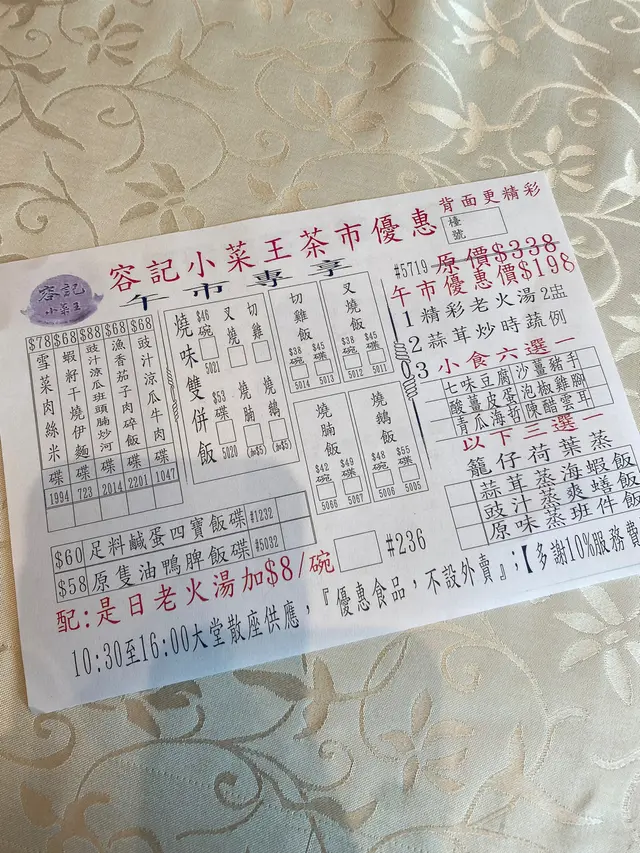 背面更精彩
容記小菜王茶市優惠
檯號
容記
小菜王
午市專享
$78 雪菜肉絲米 碟 1994
$68 蝦籽干燒伊麵 碟 723
$88 豉汁涼瓜班頭腩炒河 碟 2014
$68 漁香茄子肉碎飯 碟 2201
$68 豉汁涼瓜牛肉 碟 1047
燒味雙併飯
$46碗 5021
$53碟 5020
叉燒
切雞
燒腩
燒鵝
(加$5)
(加$5)
切雞飯
$38碗 5014
$45碟 5013
叉燒飯
$38碗 5012
$45碟 5011
燒腩飯
$42碗 5066
$49碟 5067
燒鵝飯
$48碗 5006
$55碟 5005
#5719 原價$338
午市優惠價$198
1 精彩老火湯2盅
2 蒜茸炒時蔬例
3 小食六選一
七味豆腐 沙薑豬手
酸薑皮蛋 泡椒雞腳
青瓜海哲 陳醋雲耳
以下三選一
籠仔荷葉蒸
蒜茸蒸海蝦飯
豉汁蒸爽鱔飯
原味蒸班件飯
$60 足料鹹蛋四寶飯 碟 #1232
$58 原隻油鴨脾飯 碟 #5032
配:是日老火湯加$8/碗 #236
10:30至16:00大堂散座供應,『優惠食品,不設外賣』;【多謝10%服務費